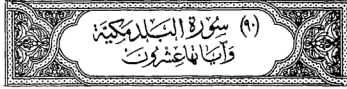 (٩٠) سورة البلد مكية
وآياتها عشرون